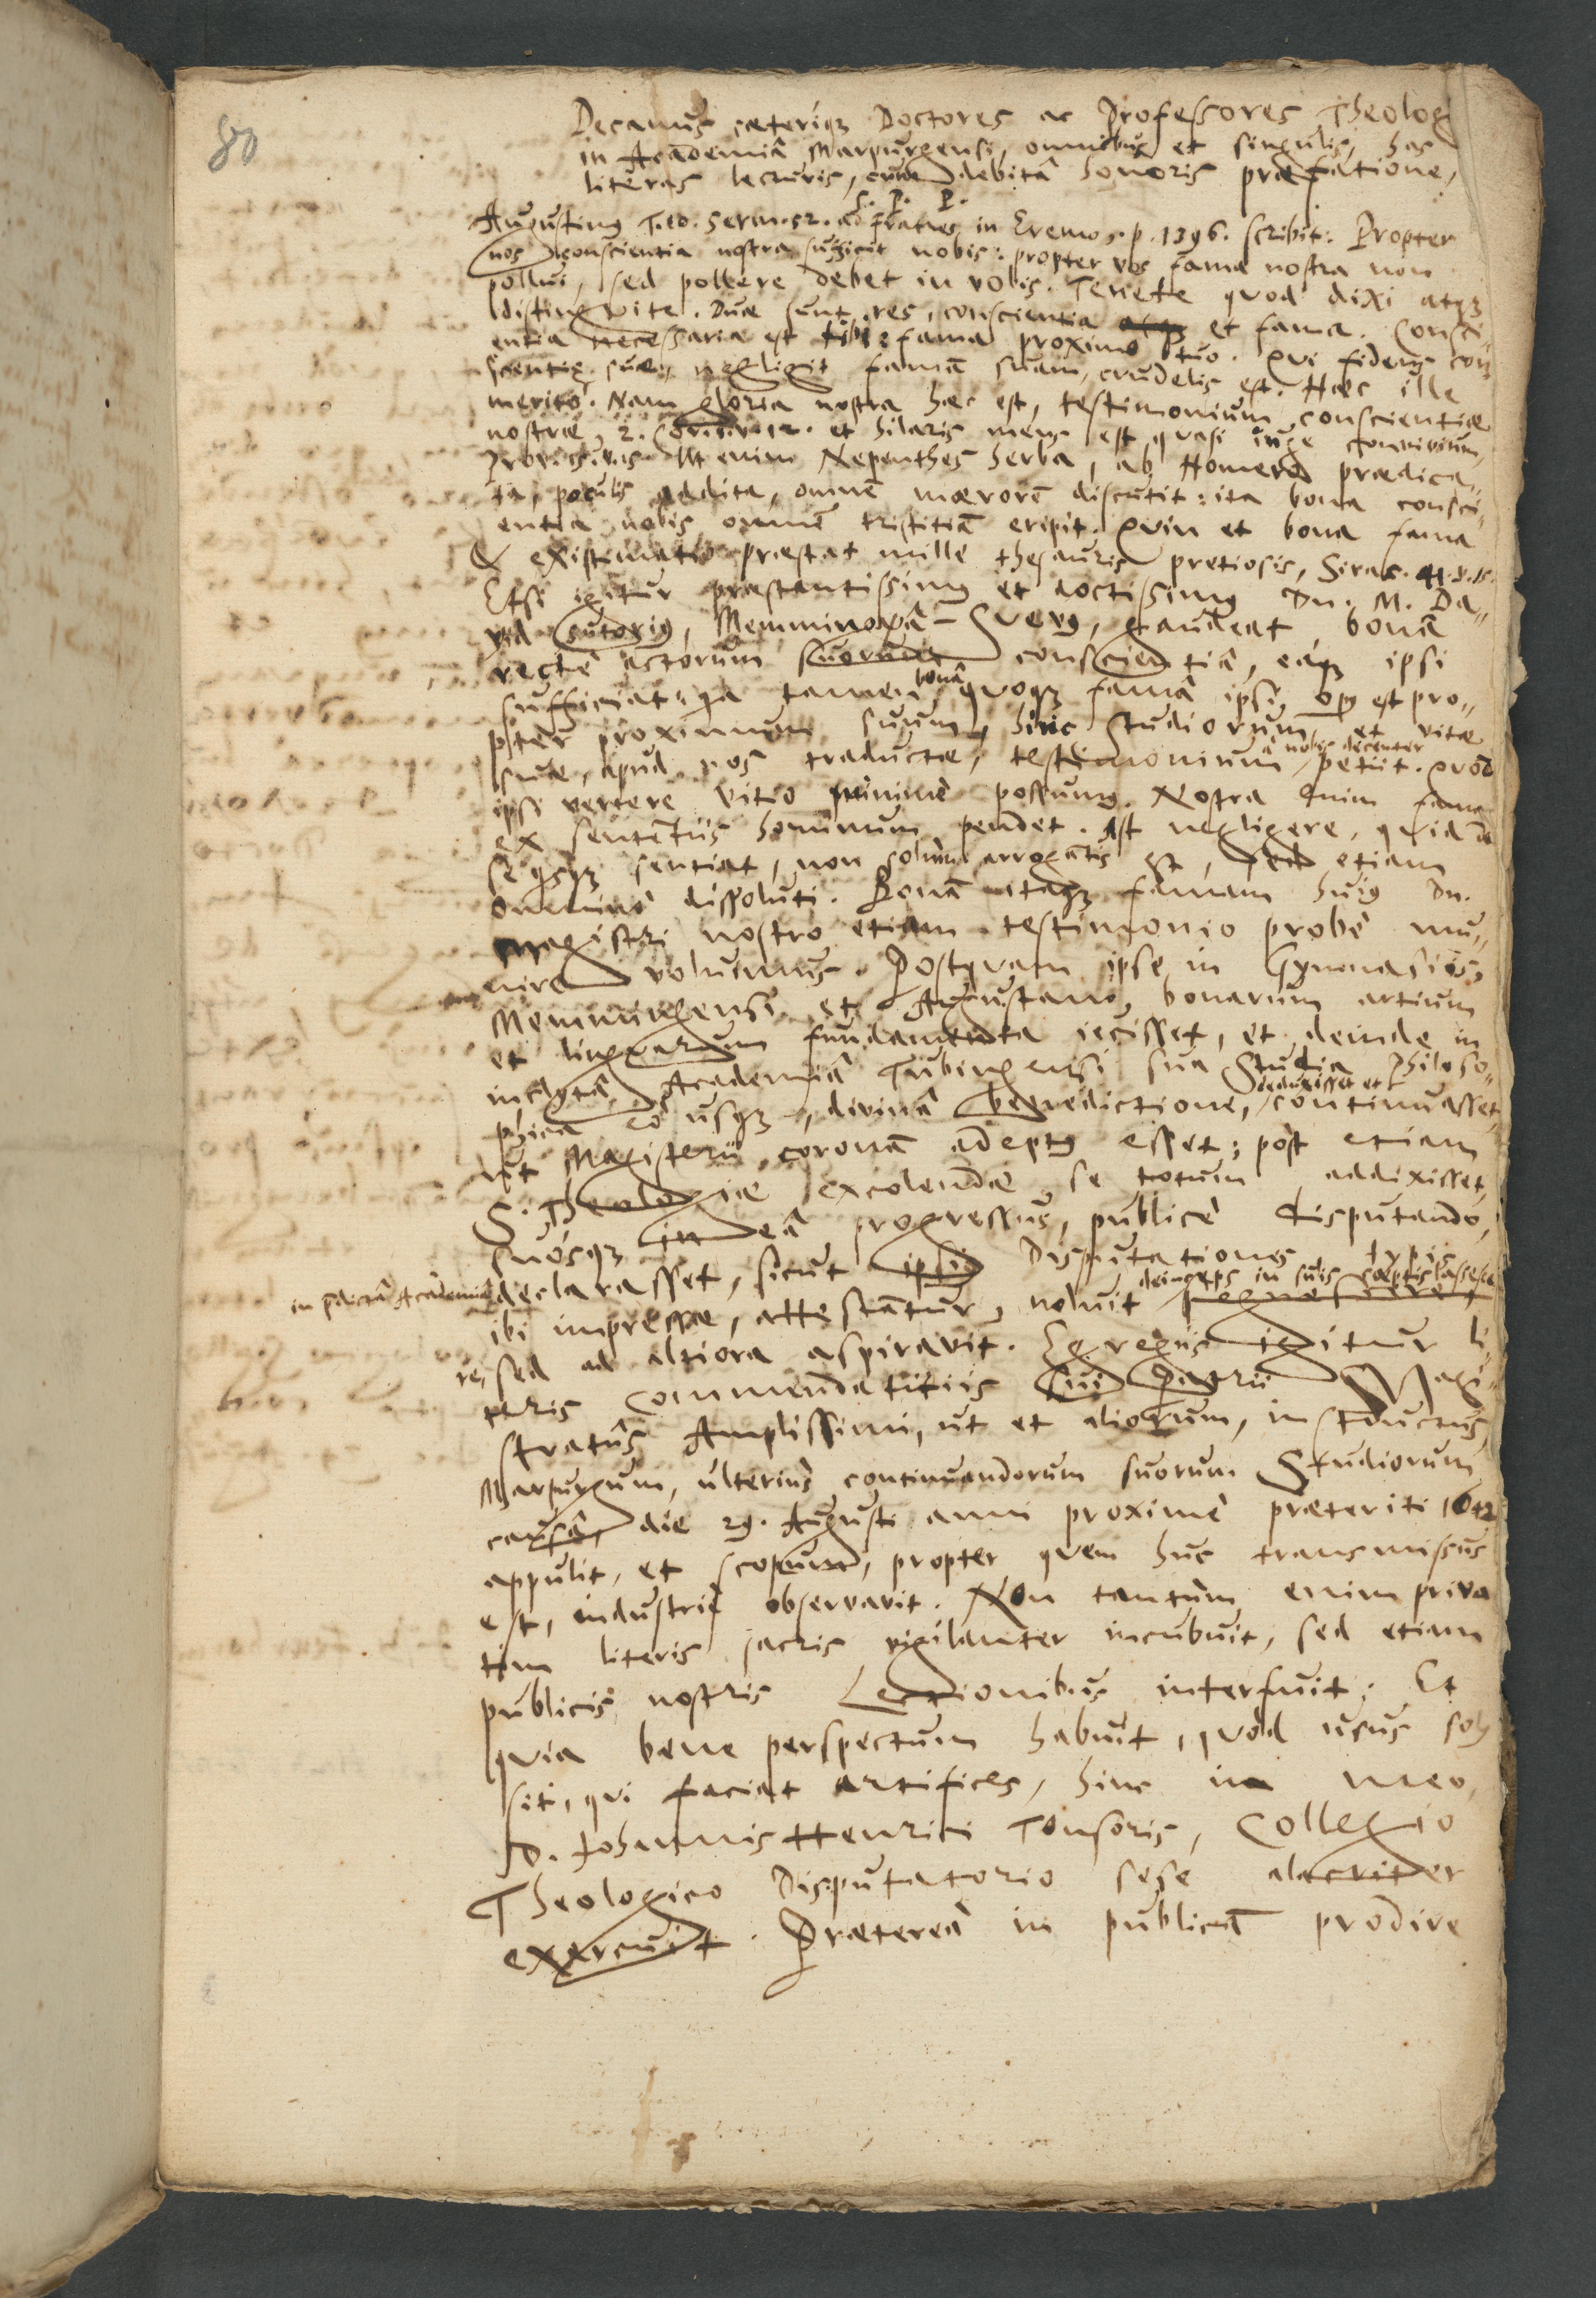 80
Decanus cæteriqz Doctores ac Professores Theologi
in Academiâ Marpurgensi, omnibus et singulis, has
literas lecturis, cum debitâ honoris præfatione,
S. P. P.
Augustinus T.10. Serm. 52. ad Fratres in Eremo s. p. 1396. scribit: Propter
nos conscientia nostra sufficit nobis: propter vos fama nostra non
pollui, sed pollere debet in vobis. Tenete quod dixi atqz
distingvite. Duæ sunt res, conscientia et fama. Consci-
entia necessaria est tibi: fama proximo tuo. Qvi fidens con
scientiæ suæ, negligit famā suam, crudelis est. Hæc ille
meritò. Nam gloria nostra hæc est, testimonium conscientiæ
nostræ, 2. Cor. 1. v. 12. et hilaris mens est qvasi juge convivium,
Prov. 15. v. 15. Ut enim Nepenthes herba, ab Homero prædica-
ta, poculis addita, omnē mærorē discutit: ita bona consci-
entia nobis omnē tristitiā eripit. Qvin et bona fama
& existimatio præstat mille thesauris pretiosis, Sirac. 41. v. 15.
Etsi igitur præstantissimus et doctissimus Dn. M. Da-
vid Sutorius, Memmingâ-Svevus, gaudeat bonâ
rectè actorum suorum conscientiâ, eaqz ipsi
sufficiat: qa tamen bonâ qvoqz famâ ipsi opus est pro-
pter proximum suum, hinc studiorum et vitæ
suæ, apud nos traductæ, testimonium à nobis decenter petiit. Qvod
ipsi vertere vitio minimè possumus. Nostra enim fama
ex sententiis hominum pendet. Ast negligere, qvid de
se qsqz sentiat, non solùm arrogantis est, sed etiam
omninò dissoluti. Bonā itaqz famam hujus Dn.
Magistri nostro etiam testimonio probè mu-
nire volumus. Postqvam ipse in Gymnasiis,
Memmingensi et Augustano, bonarum artium
et lingvarum fundamenta jecisset, et deinde in
inclytâ Academiâ Tubingensi sua Studia Philoso-
phica eò usqz, divinâ benedictione, deduxisset et continuasset,
ut Magisterii coronā adeptus esset; post etiam
S. Theologiæ excolendæ se totum addixisset,
suosqz in eâ progressus, publicè disputando,
in prædictâ Academiâ declarasset, sicut ipsius Disputationes typis
ibi impressæ, attestantur, noluit deinceps in suis cæptis lassesce
re, sed ad altiora aspiravit. Egregiis igitur li-
teris commendatitiis sui Patrii Magi-
stratûs Amplissimi, ut et aliorum, instructus
Marpurgum, ulterius continuandorum suorum Studiorum
causâ, die 29. Augusti anni proximè præteriti 1642
appulit, et scopum, propter qvem huc transmissus
est, industriè observavit. Non tantùm enim priva
tim literis sacris vigilanter incubuit, sed etiam
publicis nostris Lectionibus interfuit: Et
qvia bene perspectum habuit, qvod usus solus
sit, qvi faciat artifices, hinc in meo,
D. Johannis Henrici Tonsoris, Collegio
Theologico Disputatorio sese alacriter
exercuit. Prætereà in publicū prodire